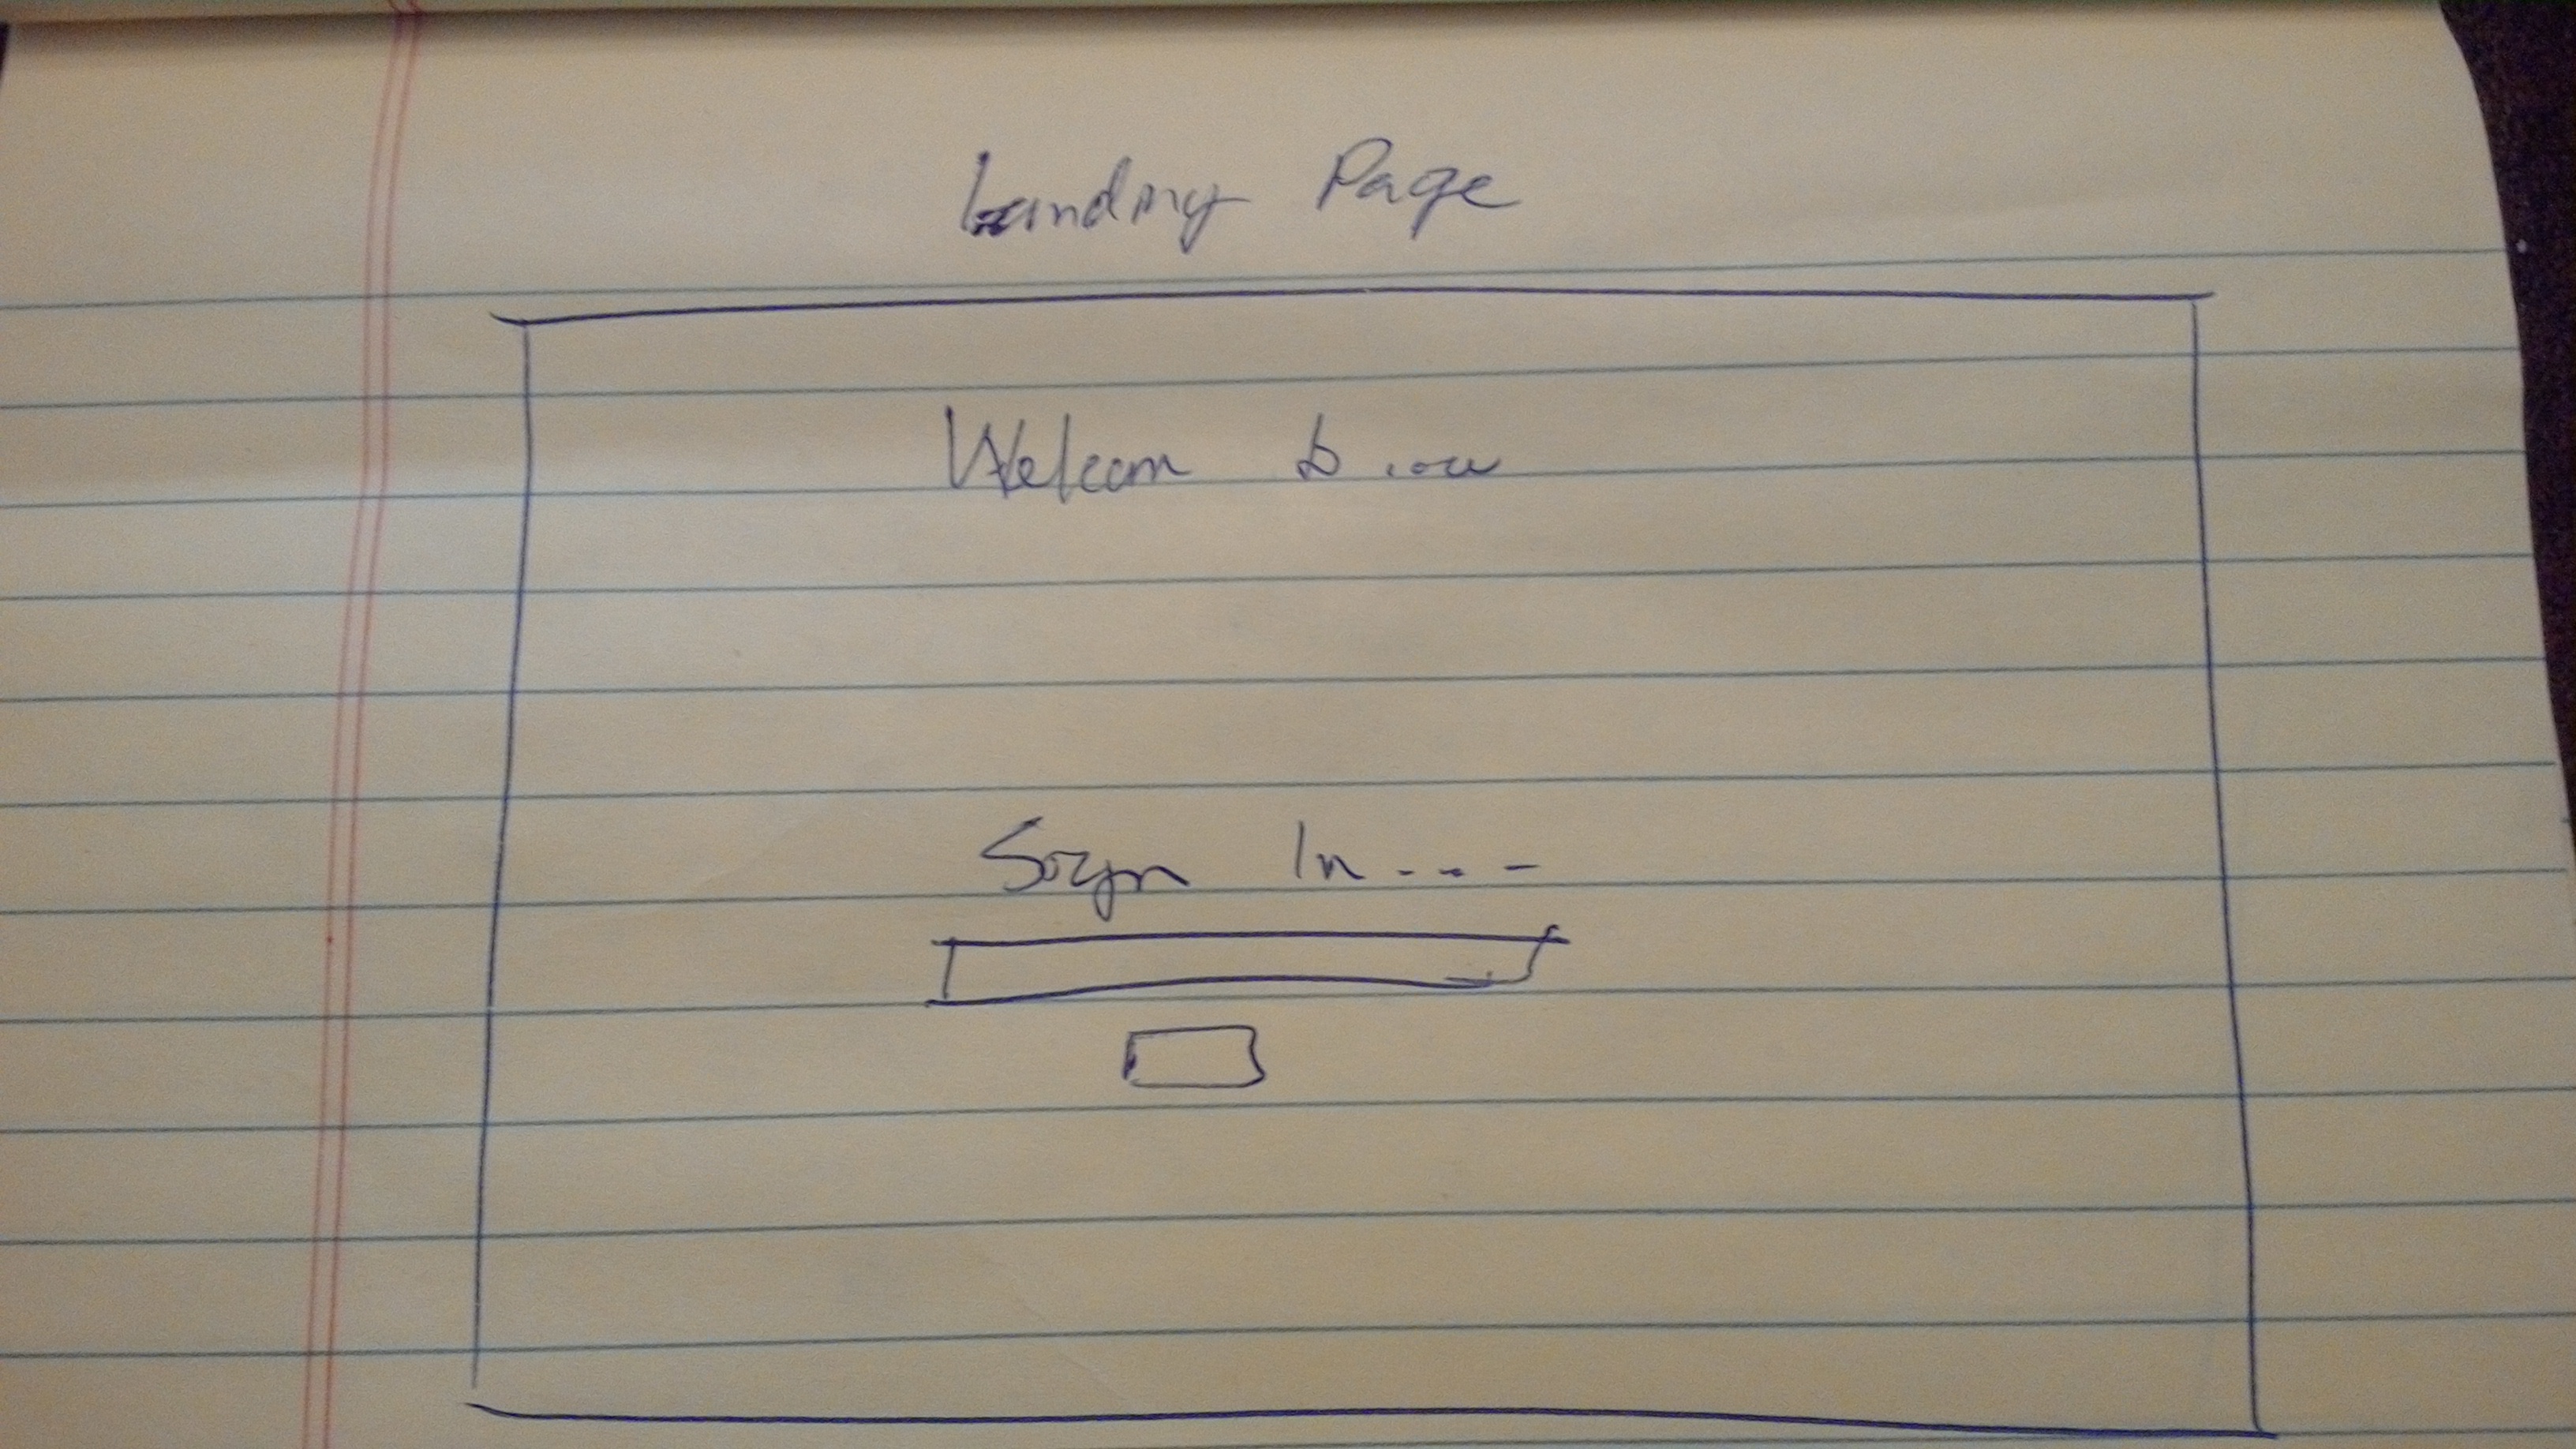 Landing Page
Welcom
Sign In....